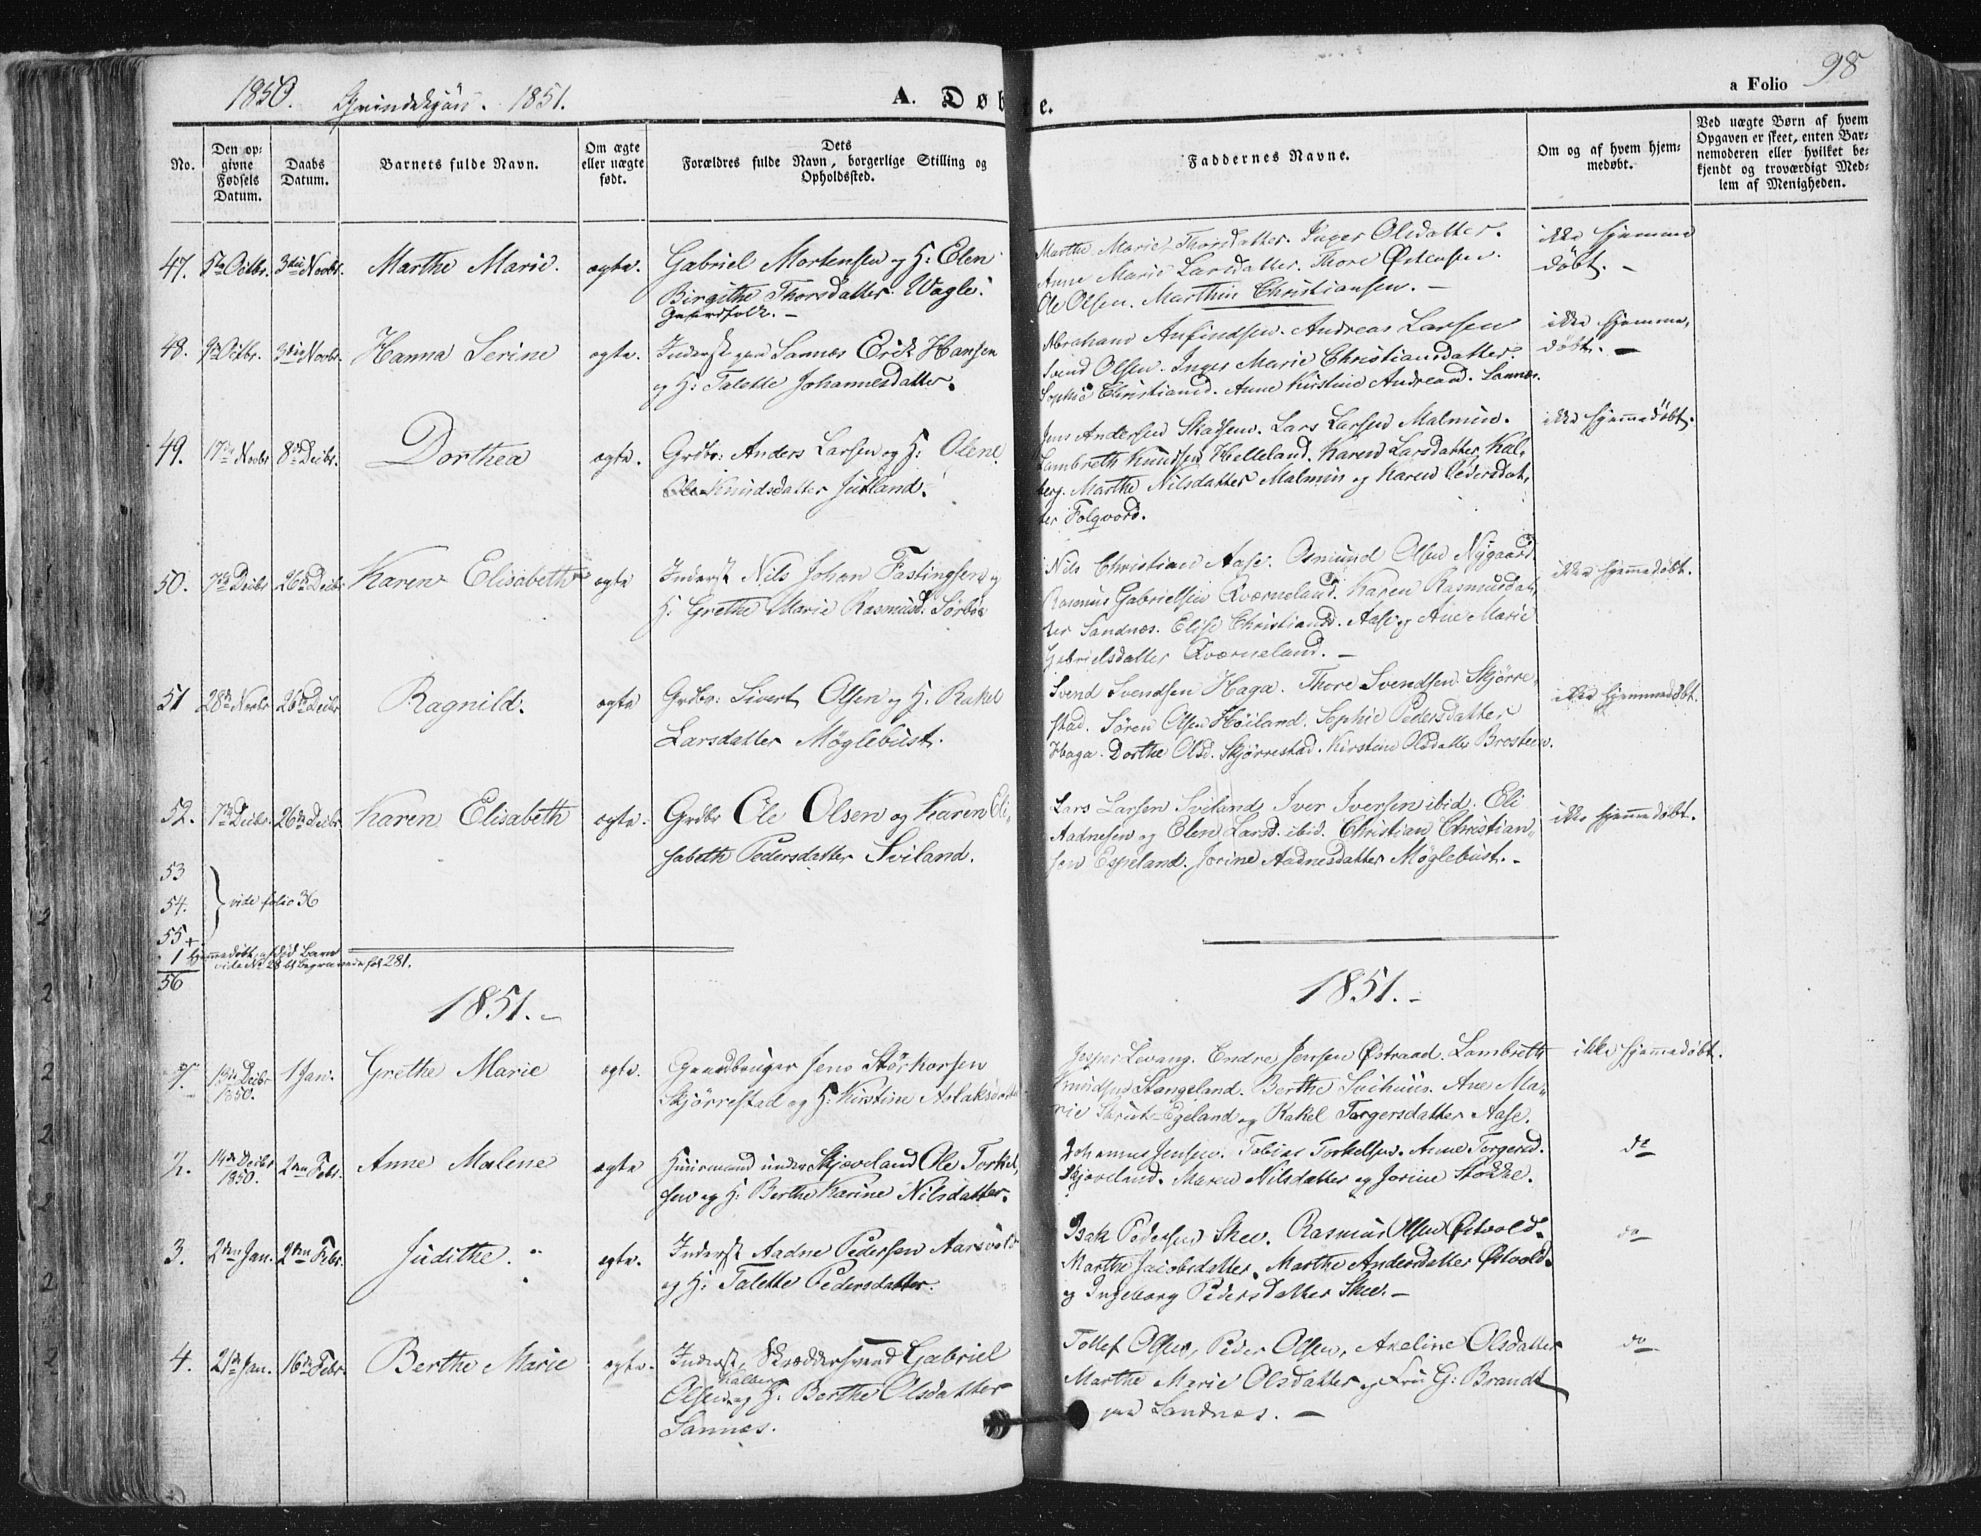 1850. 1851.
A. Døbte.
a Folio 98
No.
Den op-
givne
Fødsels
Datum.
Daabs
Datum.
Barnets fulde Navn.
Om ægte
eller uægte
født.
Dets
Forældres fulde Navn, borgerlige Stilling og
Opholdssted.
Faddernes Navne.
Om og af hvem hjem-
medøbt.
Ved uægte Børn af hvem
Opgaven er skeet, enten Bar-
nemoderen eller hvilket be-
kjendt og troværdigt Med-
lem af Menigheden.
47. 3die Novbr. Marthe Marie. ægte.
Gabriel Mortensen og H: Elen
Birgithe Thorsdatter Wagle.
Marthe Marie Thorsdatter. Inger Olsdatter.
Anne Marie Larsdatter. Thore Østensen.
Ole Olsen. Marthin Christiansen. –
ikke hjemme
døbt. –
48. 9de Octbr. 3die Novbr. Hanna Serine ægte.
Inderst paa Sannes Erik Hansen
og H: Talette Johannesdatter.
Abraham Anfindsen. Andreas Larsen
Svend Olsen. Inger Marie Christiansdatter.
Sophie Christiansd. Anne Kirstine Andreasd. Sannes.
ikke hjemme,
døbt. –
49. 17de Novbr 8de Decbr. Dorthea ægte.
Grdbr: Anders Larsen og H: Olene
Knudsdatter Jutland.
Jens Andersen Skadsem. Lars Larsen Malmin.
Lambreth Knudsen Helleland. Karen Larsdatter Kal-
berg. Marthe Nilsdatter Malmin og Karen Pedersdat,
ter Folqvord.
ikke hjemmedøbt.
50. 7de Decbr 26de Decbr Karen Elisabeth ægte
Inderst Nils Johan Fastingsen og
H: Grethe Marie Rasmusd: Sörböe
Nils Christian Aase. Osmund Olsen Nygaard
Rasmus Gabrielsen Qværneland. Karen Rasmusdat,
ter Sandnes. Elise Christiansd. Aase og Ane Marie
Gabrielsdatter Qværneland. –
ikke hjemmedøbt.
51 28de Novbr 26de Decbr Ragnild. ægte
Grdbr: Sivert Olsen og H. Rakel
Larsdatter Möglebust.
Svend Svendsen Haga. Thore Svendsen Skjörre-
stad. Sören Olsen Höiland. Sophie Pedersdatter
Haga. Dorthe Olsd. Skjörrestad. Kirstine Olsdatter Brosteen.
ikke hjemmedøbt.
52. 7de Decbr. 26de Decbr Karen Elisabeth ægte.
Grdbr Ole Olsen og Karen Eli-
sabeth Pedersdatter Sviland.
Lars Larsen Sviland. Iver Iversen ibid. Eli
Aadnesen og Elen Larsd. ibid. Christian Christian-
sen Espeland. Jorine Aadnesdatter Möglebust. –
ikke hjemmedøbt.
53
54. } vide folio 36
55 +
1 Hjemmedøbt, afdöd Barn
vide No 28 bl. begravede fol 281.
56
1851. –
1851. –
13de Decbr 1850. 1 Jan: Grethe Marie ægte.
Gaardbruger Jens Störkorsen
Skjörrestad og H: Kirstine Aslaksdatter
Jesper Levang. Endre Jensen Østraad. Lambreth
Knudsen Stangeland. Berthe Ane Ma-
rie Egeland og Rakel Torgersdatter Aase.
ikke hjemmedøbt.
2. 14de Decbr 1850. 2den Febr. Anne Malene ægte
Huusmand under Skjæveland Ole Torkel,
sen og H: Berthe Karine Nilsdatter.
Johannes Jensen. Tobias Torkelsen. Anne Torgersd.
Skjæveland. Maren Nilsdatter og Jorine Stokke.
do
3. 2den Jan. 2den Febr. Judithe. ægte.
Inderst Aadne Pedersen Aarsvold
og H: Talette Pedersdatter.
Isak Pedersen Skee. Rasmus Olsen Østvold.
Marthe Jacobsdatter. Marthe Andersdatter Østvold.
og Ingeborg Pedersdatter Skee. –
do
4. 21de Jan. 16de Febr. Berthe Marie ægte.
Inderst, Skræddersvend Gabriel
Olsen Kalberg og H: Berthe Olsdatter
Sannes.
Tollef Olsen, Peder Olsen, Axeline Olsdatter
Marthe Marie Olsdatter og Fru G: Brandt
paa Sandnes. –
do